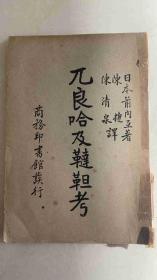 日本前內亙著
陳捷
陳清泉譯
兀良哈及韃靼考
商務印書館發行